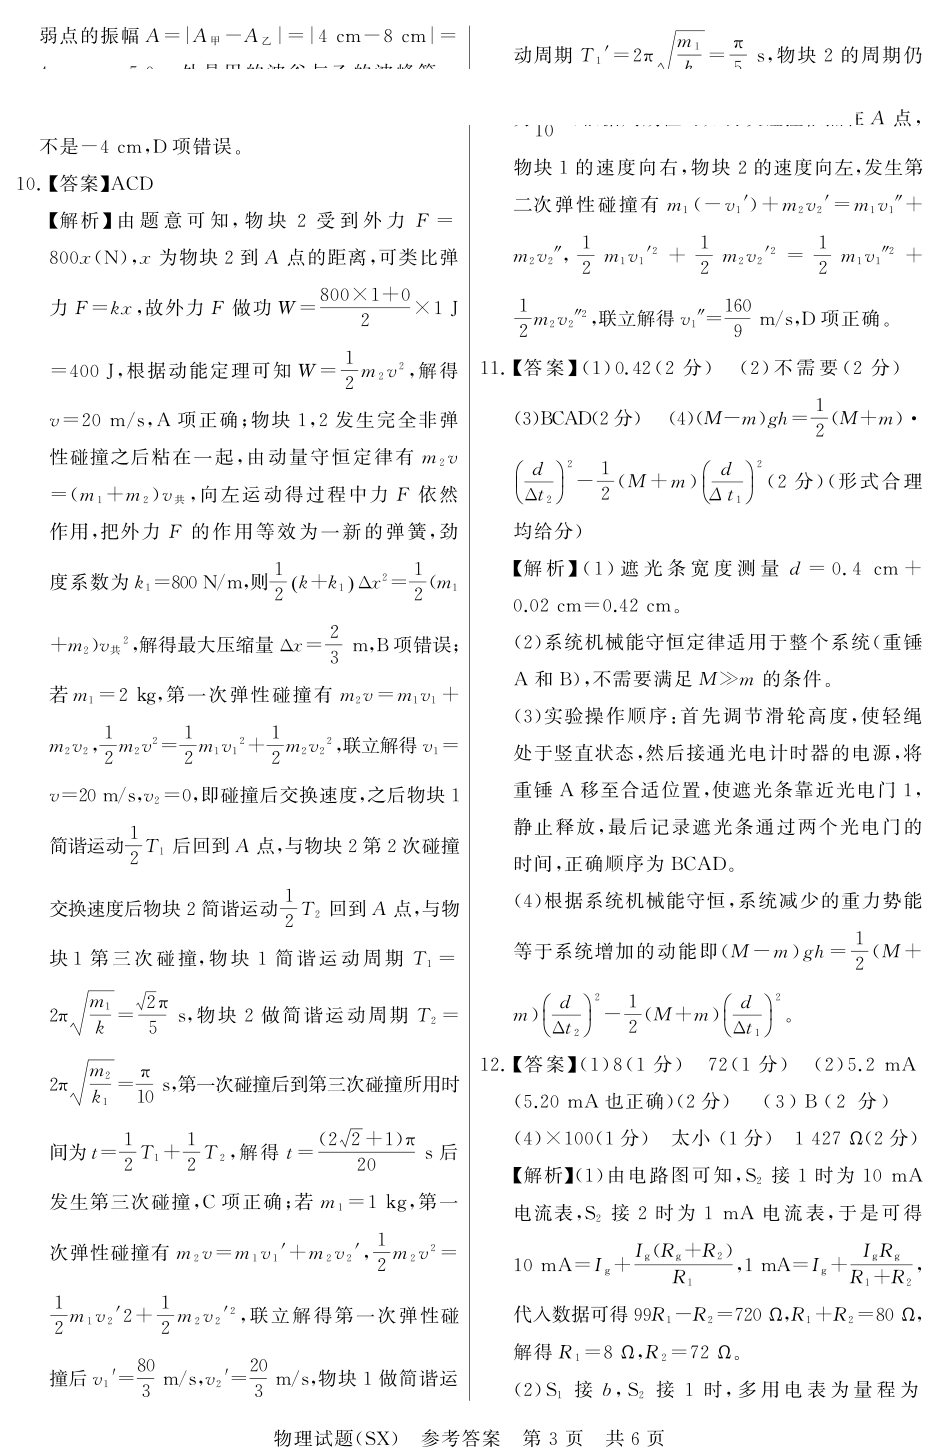 弱点的振幅 A=|A甲-A乙|=|4 cm-8 cm|=
不是-4 cm,D项错误。
10.【答案】ACD
【解析】由题意可知,物块 2 受到外力 F=
800x(N),x 为物块 2 到 A 点的距离,可类比弹
力 F=kx,故外力 F 做功 W=\frac{800×1+0}{2}×1 J
=400 J,根据动能定理可知 W=\frac{1}{2}m₂v²,解得
v=20 m/s,A 项正确;物块 1,2 发生完全非弹
性碰撞之后粘在一起,由动量守恒定律有 m₂v
=(m₁+m₂)v共,向左运动得过程中力 F 依然
作用,把外力 F 的作用等效为一新的弹簧,劲
度系数为 k₁=800 N/m,则\frac{1}{2}(k+k₁)Δx²=\frac{1}{2}(m₁
+m₂)v共²,解得最大压缩量 Δx=\frac{2}{3} m,B项错误;
若 m₁=2 kg,第一次弹性碰撞有 m₂v=m₁v₁+
m₂v₂,\frac{1}{2}m₂v²=\frac{1}{2}m₁v₁²+\frac{1}{2}m₂v₂²,联立解得 v₁=
v=20 m/s,v₂=0,即碰撞后交换速度,之后物块 1
简谐运动\frac{1}{2}T₁ 后回到 A 点,与物块 2 第 2 次碰撞
交换速度后物块 2 简谐运动\frac{1}{2}T₂ 回到 A 点,与物
块 1 第三次碰撞,物块 1 简谐运动周期 T₁=
2π\sqrt{\frac{m₁}{k}}=\frac{\sqrt{2}π}{5} s,物块 2 做简谐运动周期 T₂=
2π\sqrt{\frac{m₂}{k₁}}=\frac{π}{10} s,第一次碰撞后到第三次碰撞所用时
间为 t=\frac{1}{2}T₁+\frac{1}{2}T₂,解得 t=\frac{(2\sqrt{2}+1)π}{20} s 后
发生第三次碰撞,C 项正确;若 m₁=1 kg,第一
次弹性碰撞有 m₂v=m₁v₁′+m₂v₂′,\frac{1}{2}m₂v²=
\frac{1}{2}m₁v₂′2+\frac{1}{2}m₂v₂′²,联立解得第一次弹性碰
撞后 v₁′=\frac{80}{3} m/s,v₂′=\frac{20}{3} m/s,物块 1 做简谐运
动周期 T₁′=2π\sqrt{\frac{m₁}{k}}=\frac{π}{5} s,物块 2 的周期仍
10
A 点,
物块 1 的速度向右,物块 2 的速度向左,发生第
二次弹性碰撞有 m₁(-v₁′)+m₂v₂′=m₁v₁″+
m₂v₂″,\frac{1}{2}m₁v₁′²+\frac{1}{2}m₂v₂′²=\frac{1}{2}m₁v₁″²+
\frac{1}{2}m₂v₂″²,联立解得 v₁″=\frac{160}{9} m/s,D项正确。
11.【答案】(1)0.42(2 分) (2)不需要(2 分)
(3)BCAD(2分) (4)(M-m)gh=\frac{1}{2}(M+m)·
(\frac{d}{Δt₂})²-\frac{1}{2}(M+m)(\frac{d}{Δt₁})²(2 分)(形式合理
均给分)
【解析】(1)遮光条宽度测量 d=0.4 cm+
0.02 cm=0.42 cm。
(2)系统机械能守恒定律适用于整个系统(重锤
A 和 B),不需要满足 M≫m 的条件。
(3)实验操作顺序:首先调节滑轮高度,使轻绳
处于竖直状态,然后接通光电计时器的电源,将
重锤 A 移至合适位置,使遮光条靠近光电门 1,
静止释放,最后记录遮光条通过两个光电门的
时间,正确顺序为 BCAD。
(4)根据系统机械能守恒,系统减少的重力势能
等于系统增加的动能即(M-m)gh=\frac{1}{2}(M+
m)(\frac{d}{Δt₂})²-\frac{1}{2}(M+m)(\frac{d}{Δt₁})²。
12.【答案】(1)8(1 分) 72(1 分) (2)5.2 mA
(5.20 mA 也正确)(2 分) (3) B(2 分)
(4)×100(1 分) 太小(1 分) 1 427 Ω(2 分)
【解析】(1)由电路图可知,S₂ 接 1 时为 10 mA
电流表,S₂ 接 2 时为 1 mA 电流表,于是可得
10 mA=I_g+\frac{I_g(R_g+R₂)}{R₁},1 mA=I_g+\frac{I_gR_g}{R₁+R₂},
代入数据可得 99R₁-R₂=720 Ω,R₁+R₂=80 Ω,
解得 R₁=8 Ω,R₂=72 Ω。
(2)S₁ 接 b,S₂ 接 1 时,多用电表为量程为
物理试题(SX) 参考答案 第 3 页 共 6 页